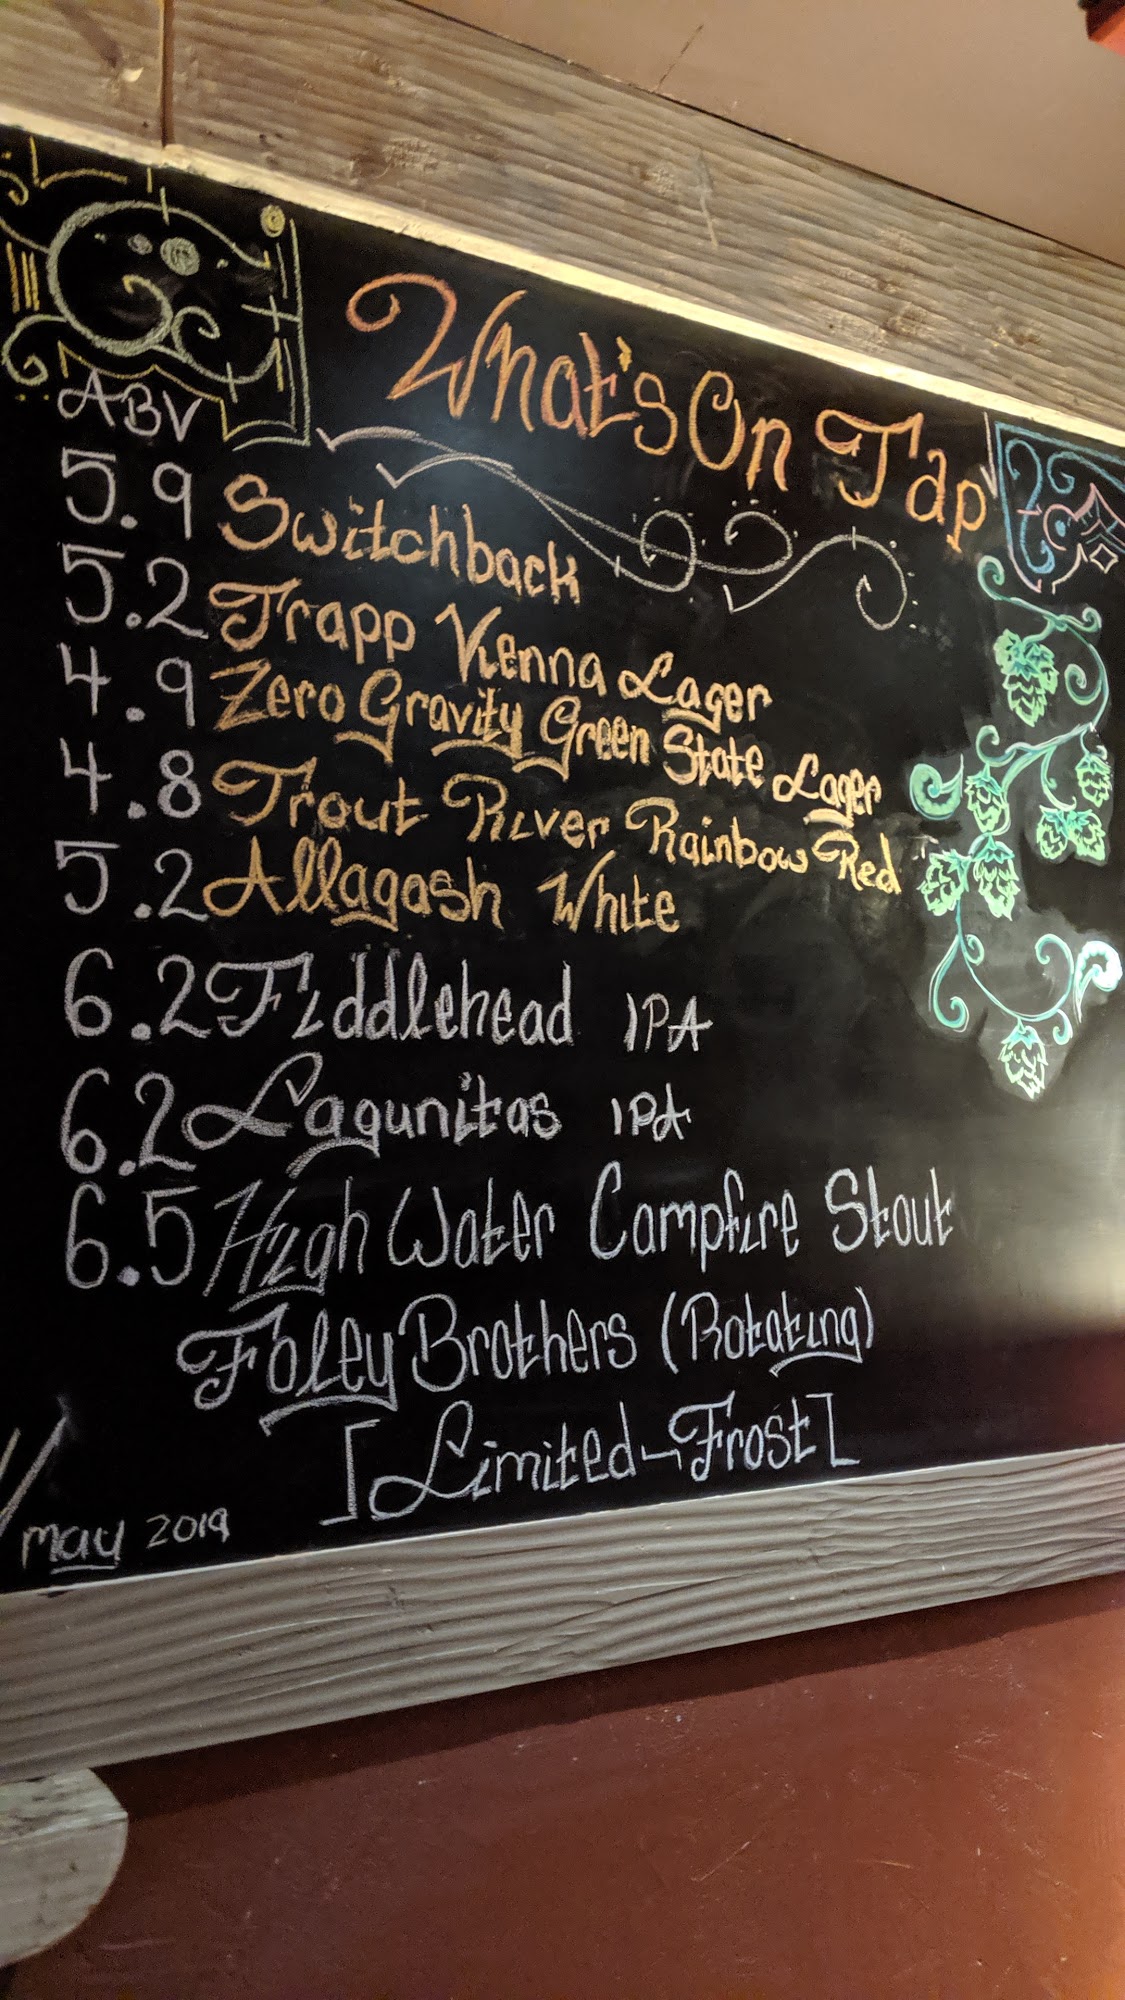 What's On Tap
ABV
5.9 Switchback
5.2 Trapp Vienna Lager
4.9 Zero Gravity Green State Lager
4.8 Trout River Rainbow Red
5.2 Allagash White
6.2 Fiddlehead IPA
6.2 Lagunitas IPA
6.5 High Water Campfire Stout
Foley Brothers (Rotating)
[Limited-Frost]
May 2019